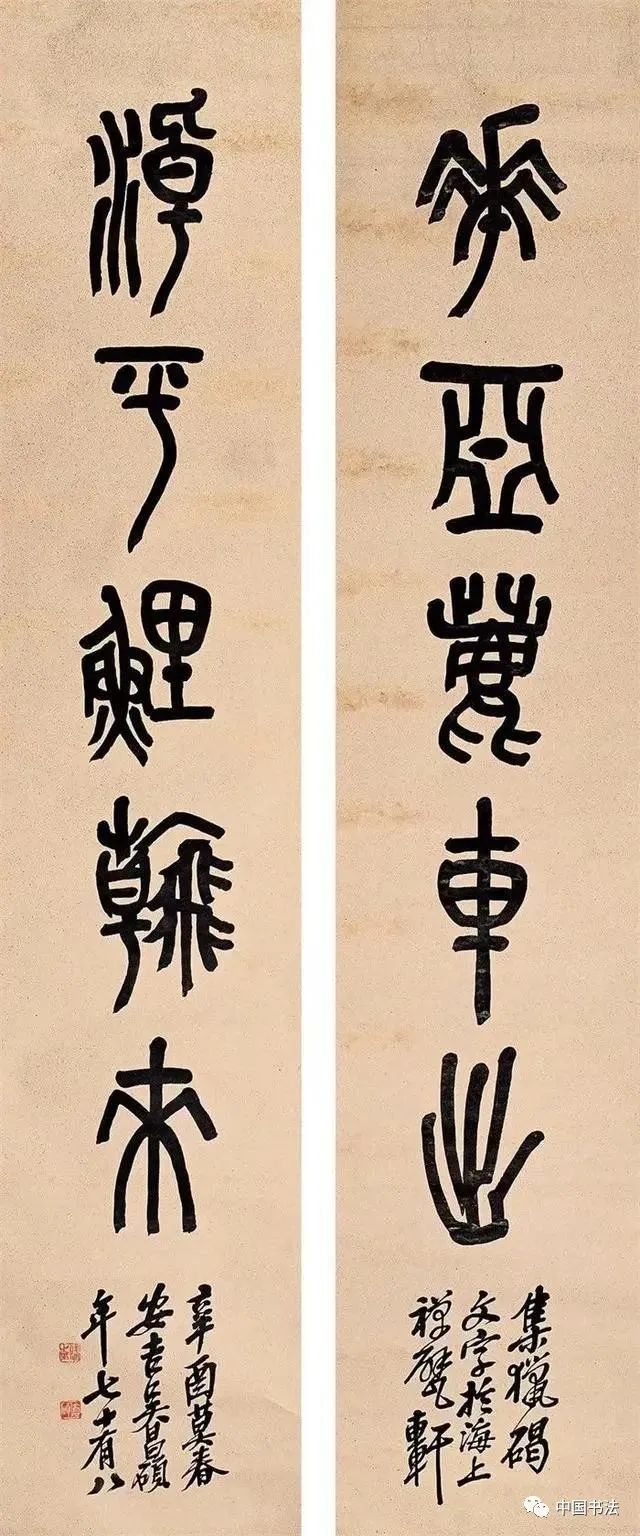 華亞鹿車出
集獵碣
文字於海上
禪甓軒
淖平鯉翰來
辛酉莫春
安吉吳昌碩
年七十有八
中国书法